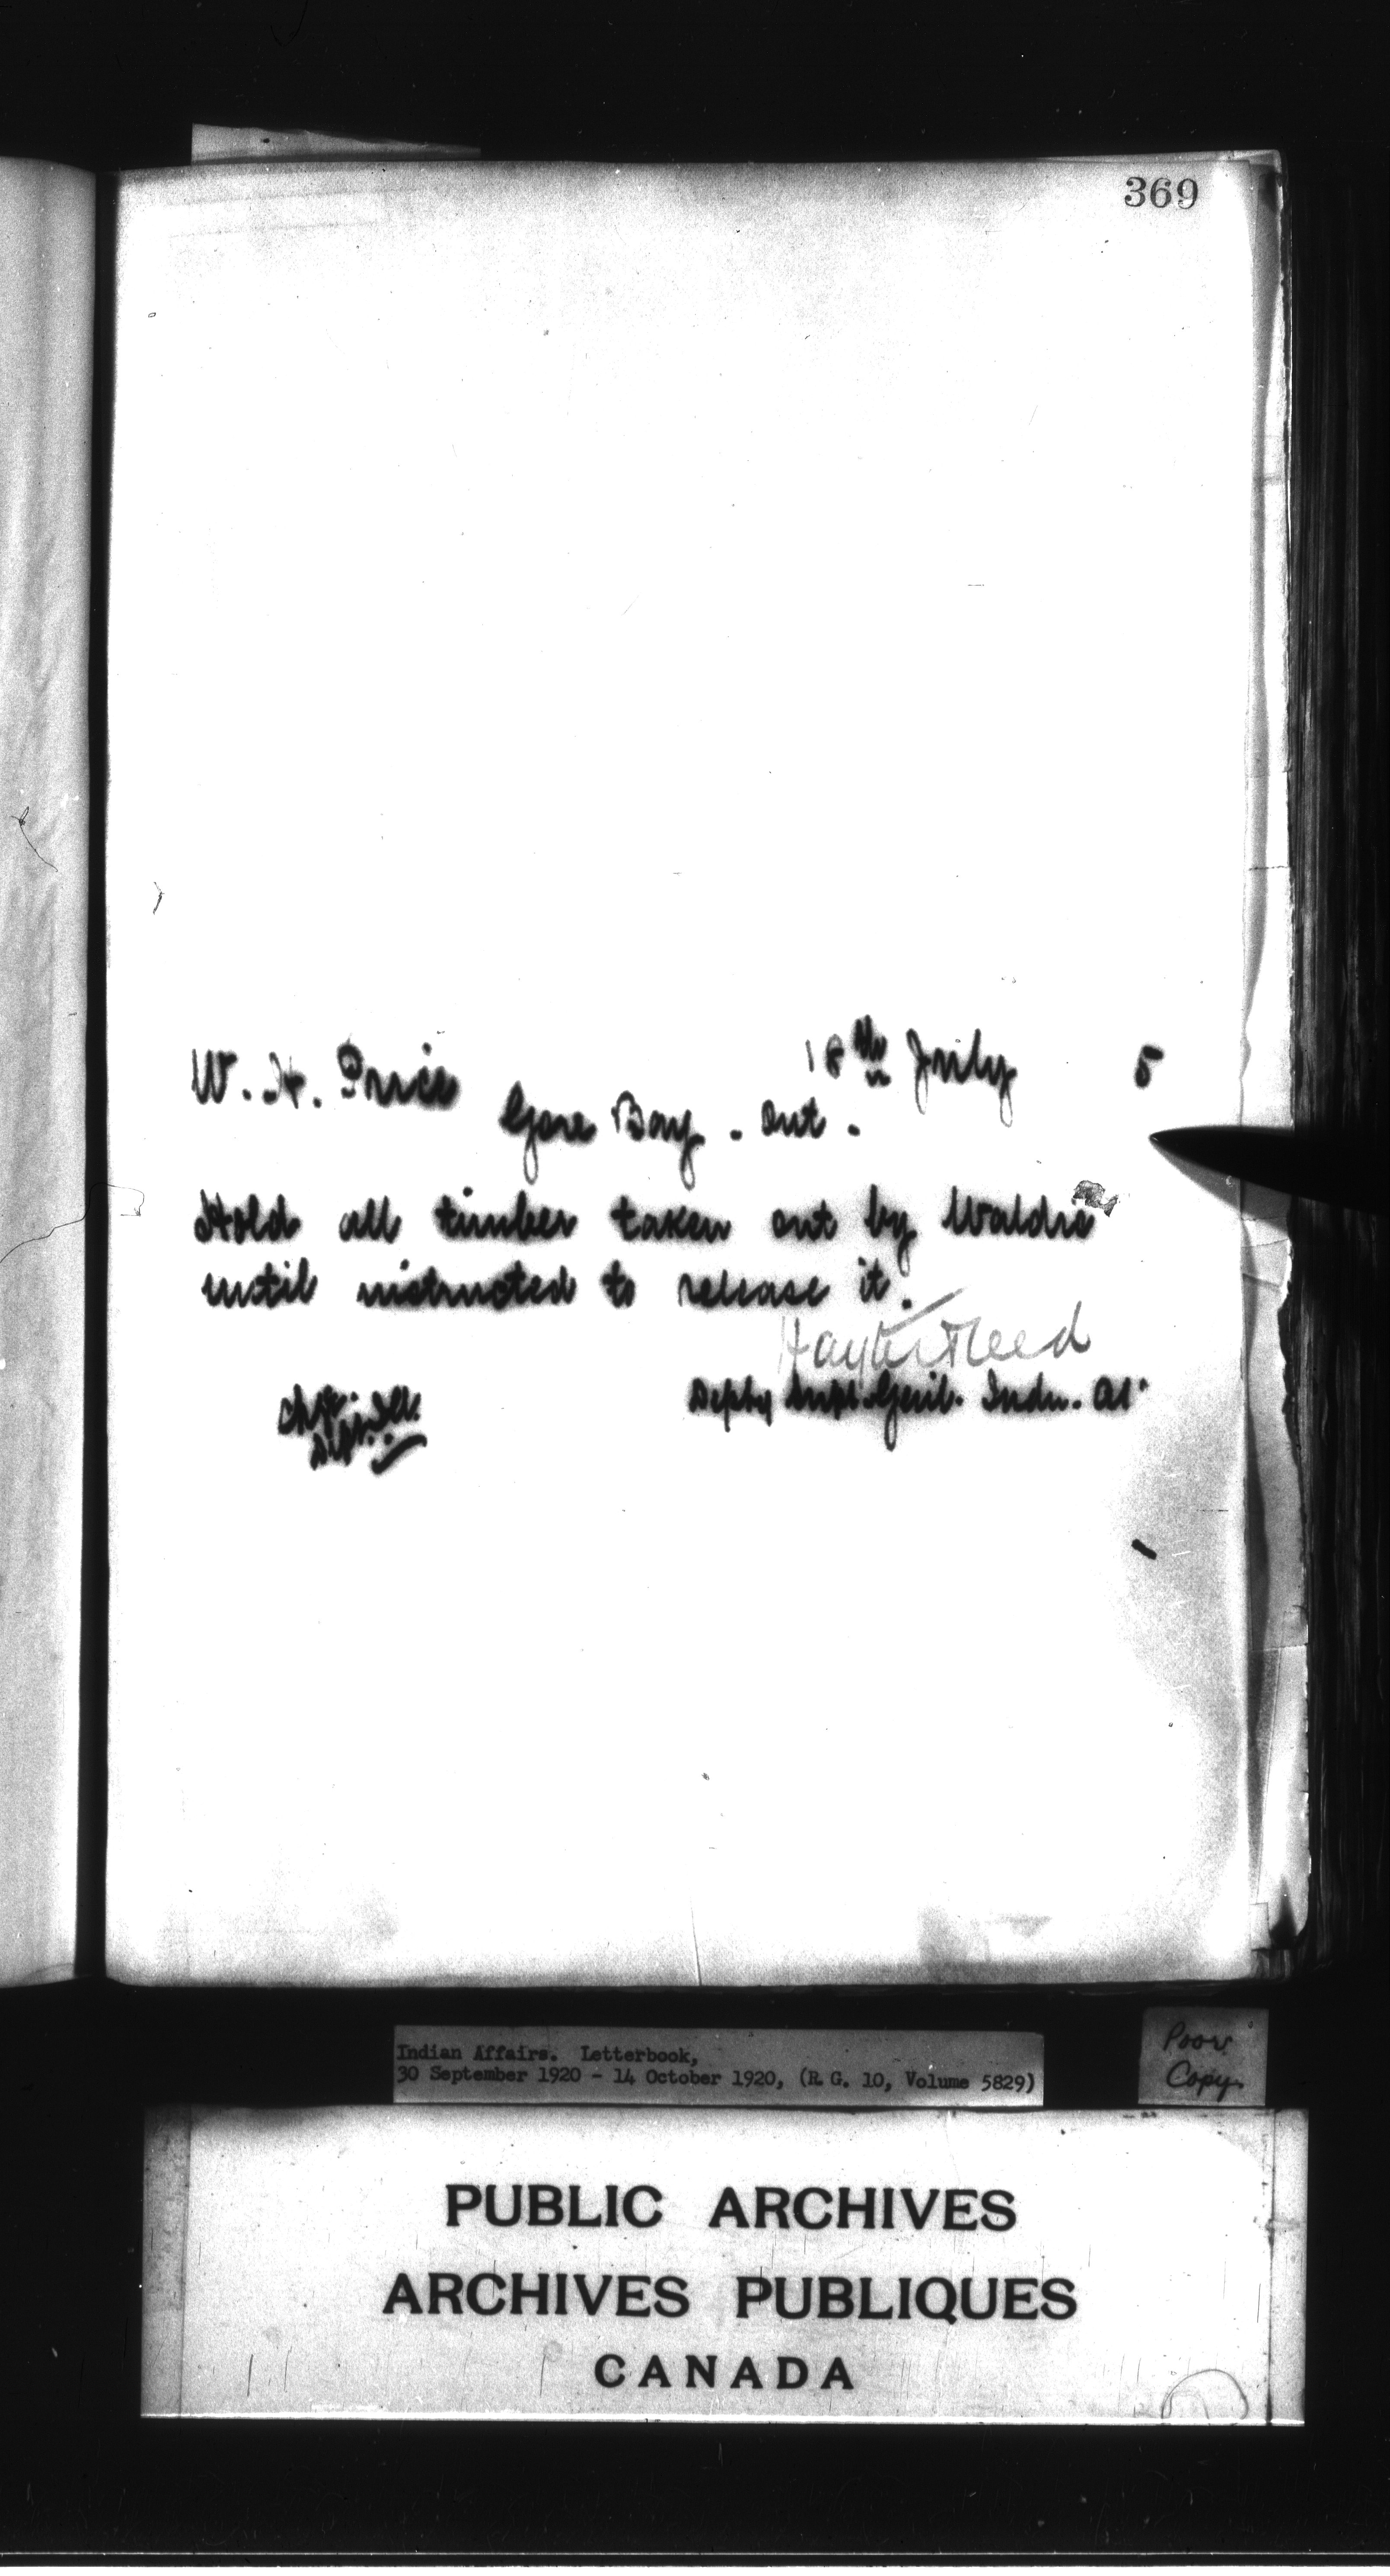 369
W. H. Price 18th July 5
Gore Bay. Ont.
Hold all timber taken out by Waldie
until instructed to release it.
Hayter Reed
Depty Supt. Genl. Indn. Af
Indian Affairs. Letterbook,
30 September 1920 - 14 October 1920, (R. G. 10, Volume 5829)
Poor
Copy
PUBLIC ARCHIVES
ARCHIVES PUBLIQUES
CANADA